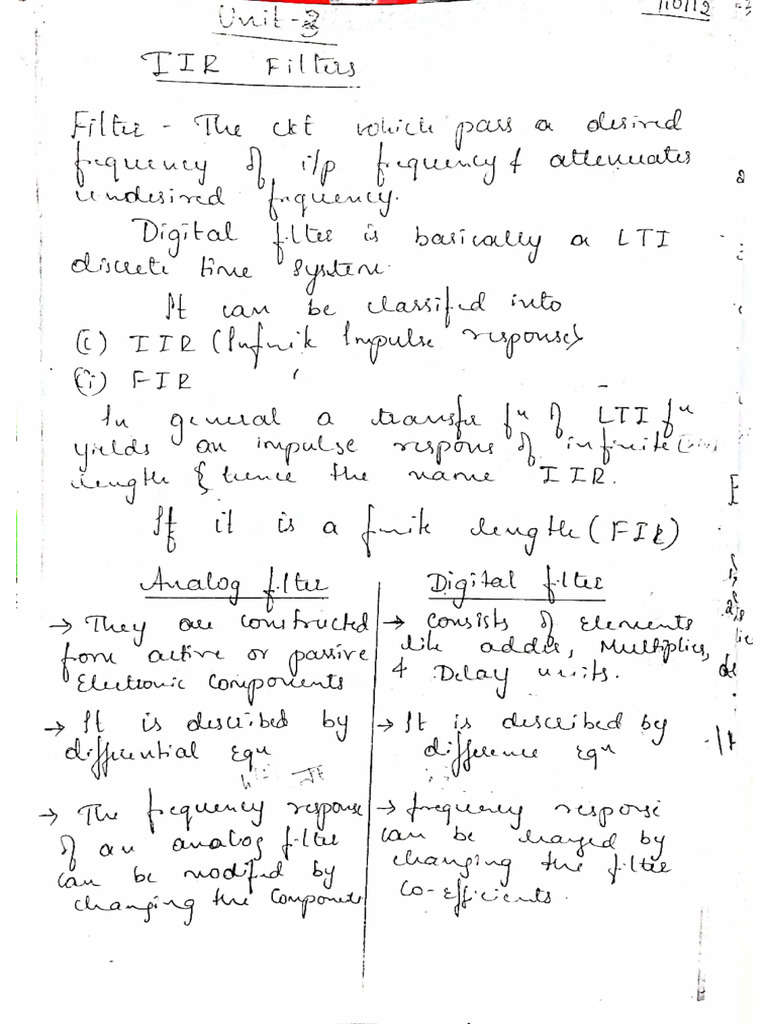 Unit-3
IIR Filters
Filter - The ckt which pass a desired
frequency of i/p frequency & attenuates
undesired frequency.
Digital filter is basically a LTI
discrete time system.
It can be classified into
(i) IIR (Infinite Impulse response)
(ii) FIR
In general a transfer fn of LTI fn
yields an impulse respons of infinite
length & hence the name IIR.
If it is a finite length (FIR)
Analog filter
→ They are constructed
form active or passive
Electronic Components
→ It is described by
differential Equn
→ The frequency response
of an analog filter
can be modified by
changing the Components
Digital filter
→ consists of elements
like adder, Multiplier,
& Delay units.
→ It is described by
difference equn
→ frequency response
can be changed by
changing the filter
co-efficients.